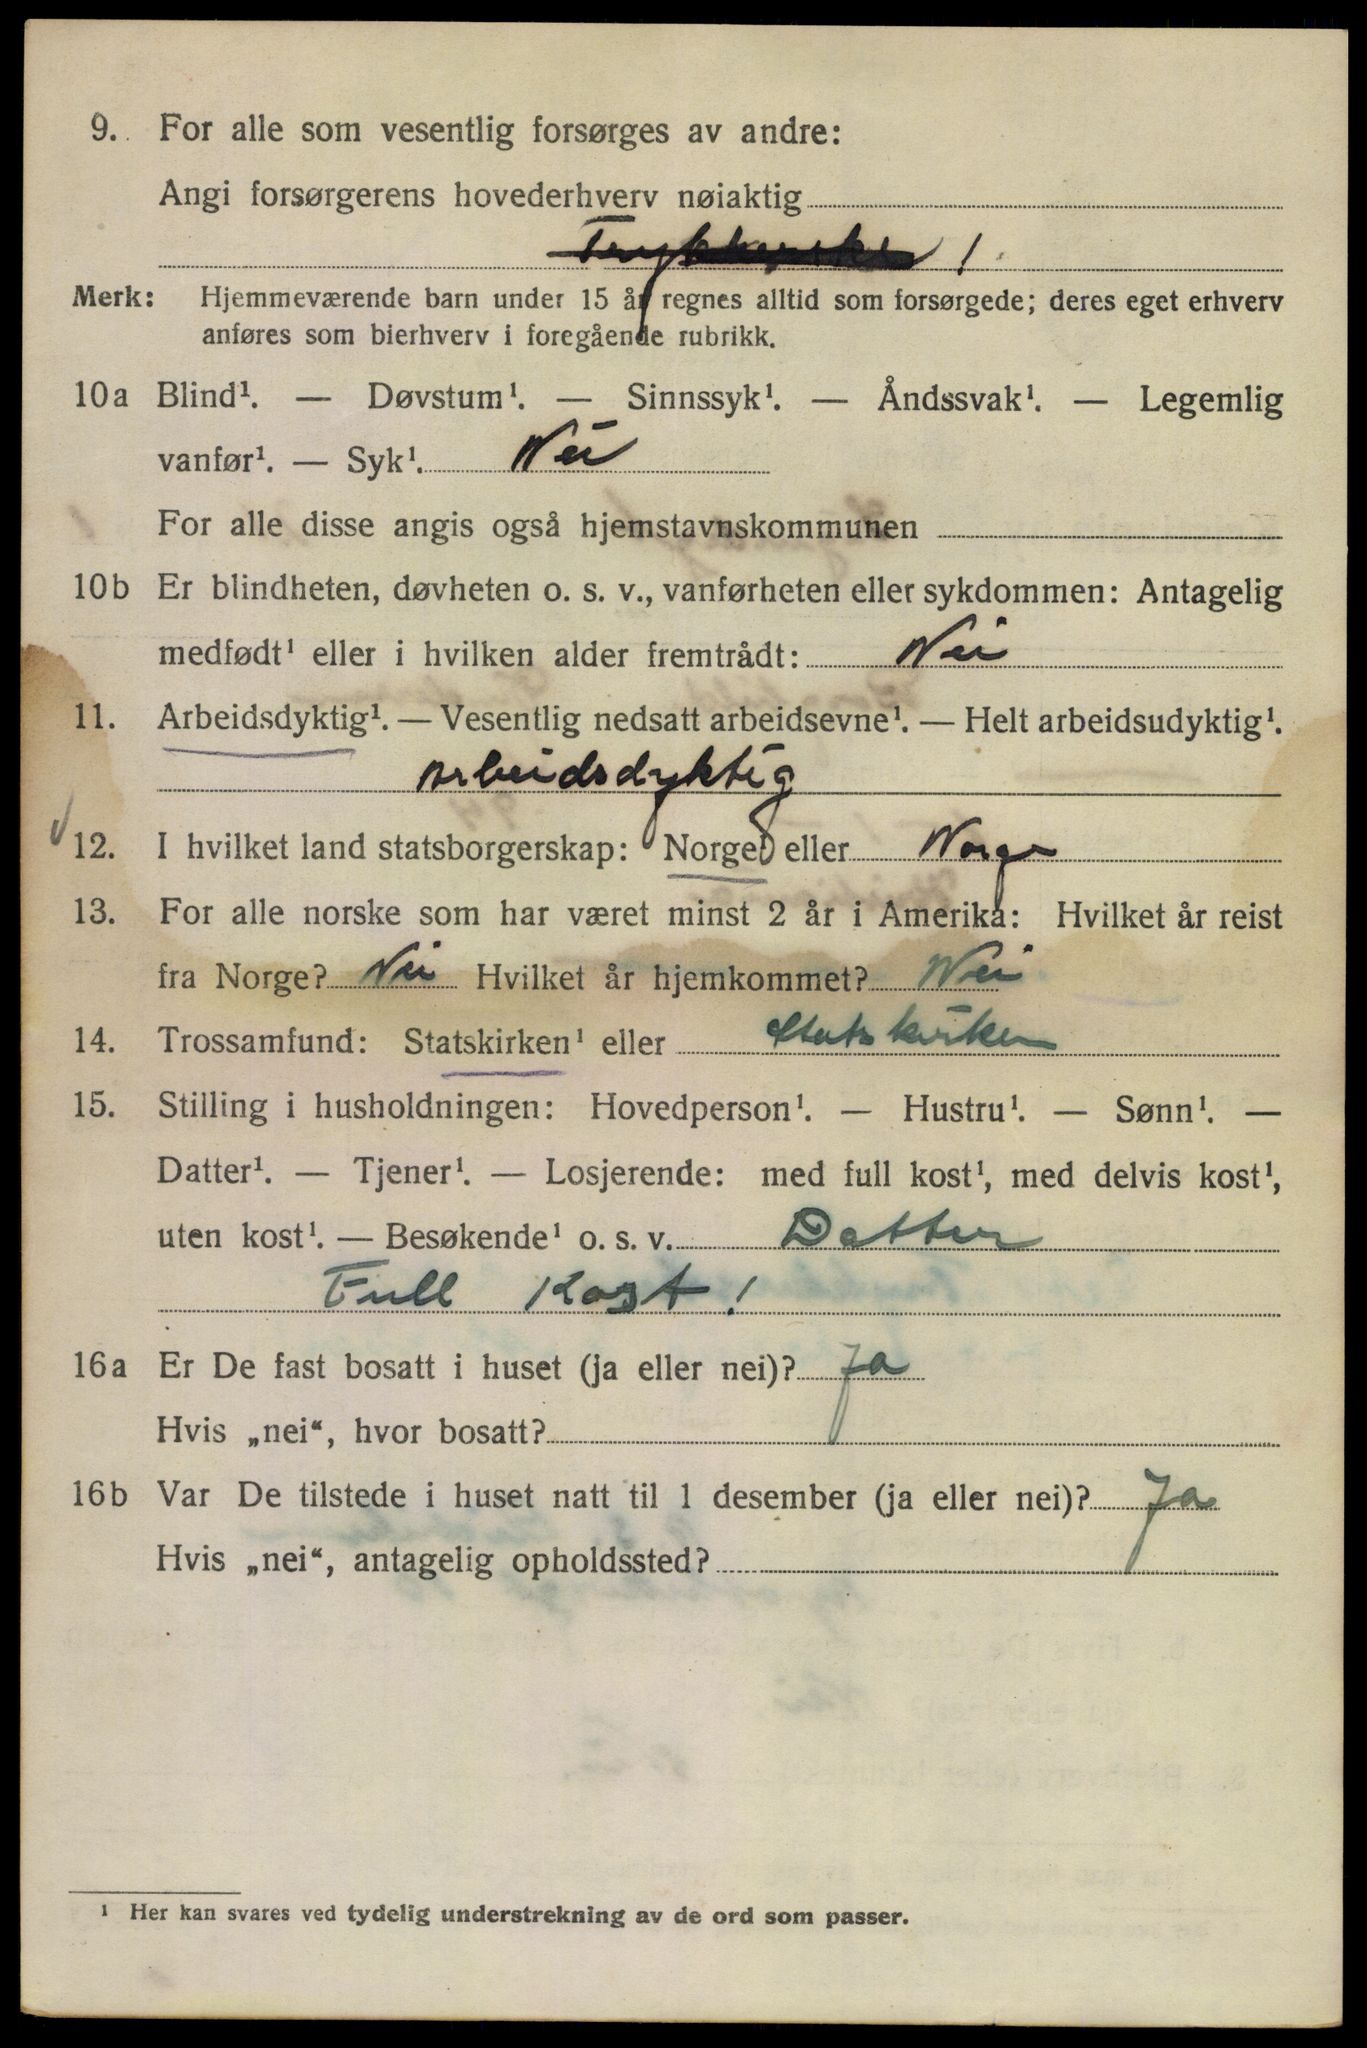 9. For alle som vesentlig forsørges av andre:
Angi forsørgerens hovederhverv nøiaktig
!
Merk: Hjemmeværende barn under 15 år regnes alltid som forsørgede; deres eget erhverv
anføres som bierhverv i foregående rubrikk.
10a Blind¹. — Døvstum¹. — Sinnssyk¹. — Åndssvak¹. — Legemlig
vanfør¹. — Syk¹. Nei
For alle disse angis også hjemstavnskommunen
10b Er blindheten, døvheten o. s. v., vanførheten eller sykdommen: Antagelig
medfødt¹ eller i hvilken alder fremtrådt: Nei
11. Arbeidsdyktig¹. — Vesentlig nedsatt arbeidsevne¹. — Helt arbeidsudyktig¹.
Arbeidsdyktig
12. I hvilket land statsborgerskap: Norge¹ eller Norge
13. For alle norske som har været minst 2 år i Amerika: Hvilket år reist
fra Norge? Nei Hvilket år hjemkommet? Nei
14. Trossamfund: Statskirken¹ eller Statskirken
15. Stilling i husholdningen: Hovedperson¹. — Hustru¹. — Sønn¹. —
Datter¹. — Tjener¹. — Losjerende: med full kost¹, med delvis kost¹,
uten kost¹. — Besøkende¹ o. s. v. Datter
Full Kost!
16a Er De fast bosatt i huset (ja eller nei)? Ja
Hvis „nei“, hvor bosatt?
16b Var De tilstede i huset natt til 1 desember (ja eller nei)? Ja
Hvis „nei“, antagelig opholdssted?
¹ Her kan svares ved tydelig understrekning av de ord som passer.